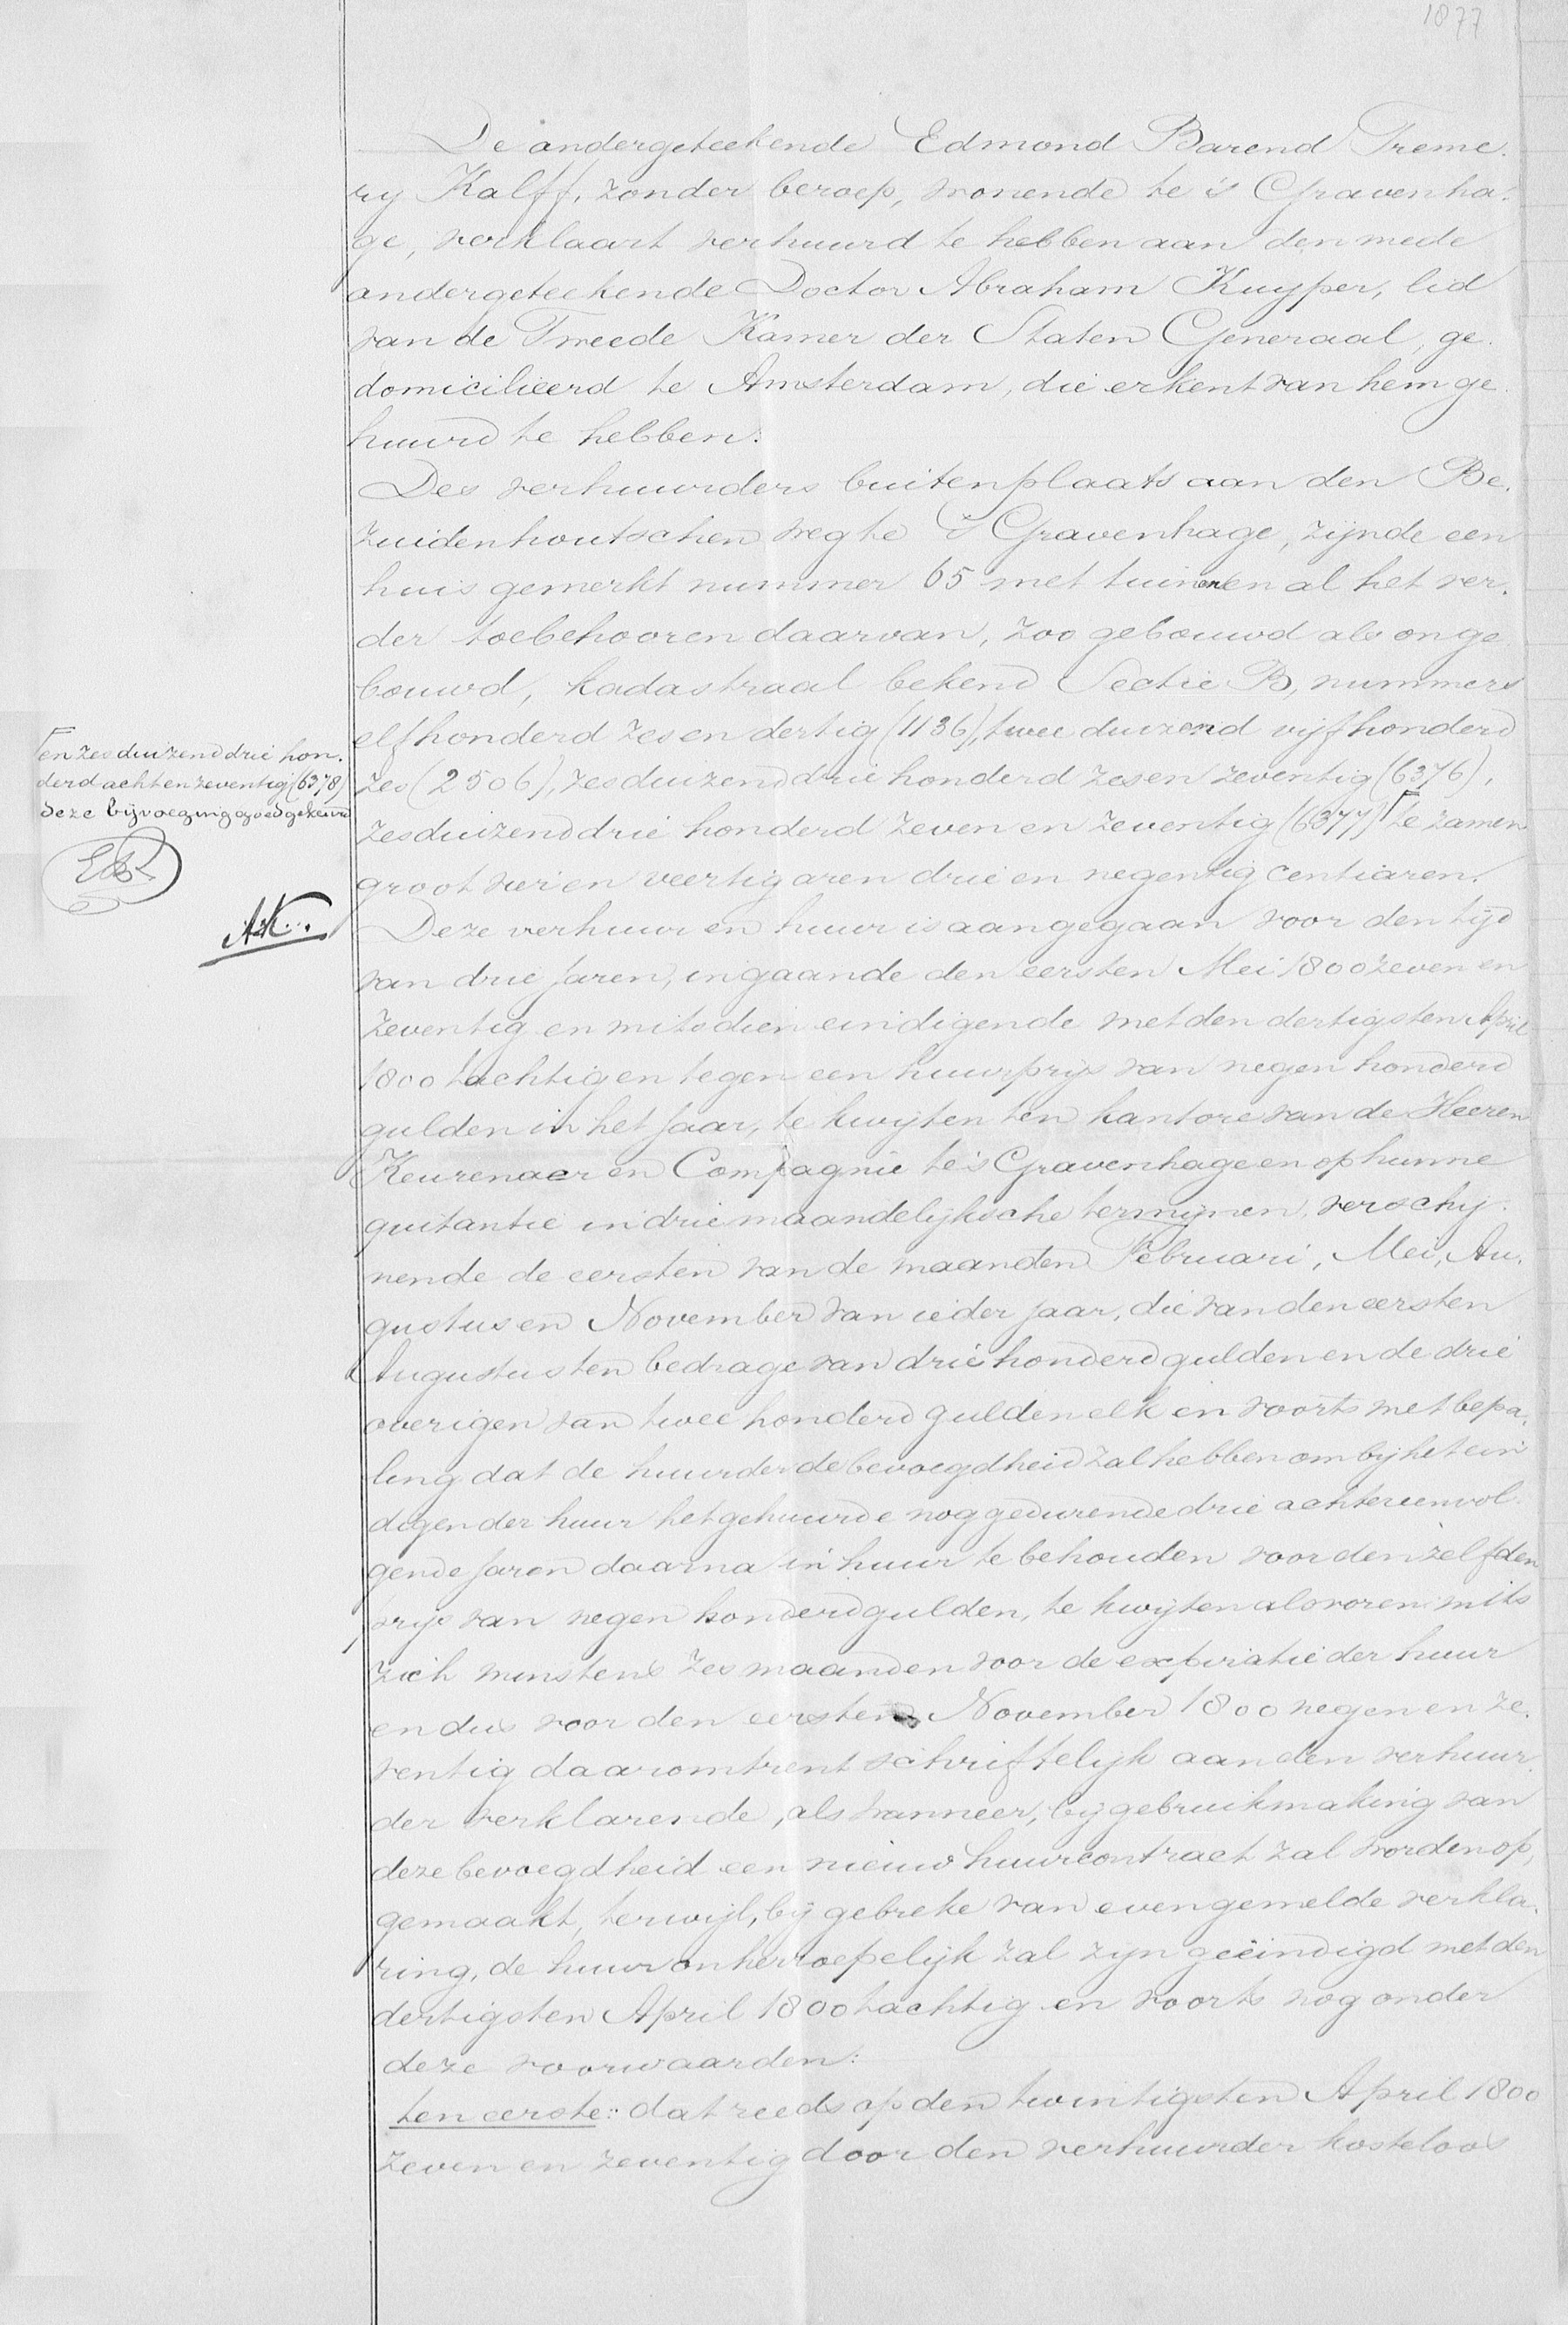 1877
De ondergeteekende Edmond Barend Treme-
ry Kalff, zonder beroep, wonende te 's Gravenha-
ge, verklaart verhuurd te hebben aan den mede
ondergeteekende Doctor Abraham Kuyper, lid
van de Tweede Kamer der Staten Generaal, ge-
domicilieerd te Amsterdam, die erkent van hem ge-
huurd te hebben:
Des verhuurders buitenplaats aan den Be-
zuidenhoutschen weg te 's Gravenhage, zijnde een
huis gemerkt nummer 65 met tuinen en al het ver-
der toebehooren daarvan, zoo gebouwd als onge
bouwd, kadastraal bekend Sectie B, nummers
elfhonderd zes en dertig (1136), twee duizend vijfhonderd
zes (2506), zesduizend drie honderd zes en zeventig (6376),
zesduizend drie honderd zeven en zeventig (6377) te zamen
groot vier en veertig aren drie en negentig centiaren.
en zesduizend drie hon-
derd acht en zeventig (6378)
deze bijvoeging goedgekeurd
AK.
Deze verhuur en huur is aangegaan voor den tijd
van drie jaren, ingaande den eersten Mei 1800 zeven en
zeventig en mitsdien eindigende met den dertigsten April
1800 tachtig en tegen een huurprijs van negen honderd
gulden in het jaar, te kwijten ten kantore van de Heeren
Keurenaer en Compagnie te 's Gravenhage en op hunne
quitantie in driemaandelijksche termijnen, verschij-
nende de eersten van de maanden Februari, Mei, Au-
gustus en November van ieder jaar, die van den eersten
Augustus ten bedrage van drie honderd gulden en de drie
overigen van twee honderd gulden elk en voorts met bepa-
ling dat de huurder de bevoegdheid zal hebben om bij het ein
digen der huur het gehuurde nog gedurende drie achtereenvol-
gende jaren daarna in huur te behouden voor den zelfden
prijs van negen honderd gulden, te kwijten als voren mits
zich minstens zes maanden voor de expiratie der huur
en dus voor den eersten November 1800 negen en ze-
ventig daaromtrent schriftelijk aan den verhuur-
der verklarende, als wanneer, bij gebruikmaking van
deze bevoegdheid een nieuw huurcontract zal worden op-
gemaakt, terwijl, bij gebreke van evengemelde verkla-
ring, de huur onherroepelijk zal zijn geëindigd met den
dertigsten April 1800 tachtig en voorts nog onder
deze voorwaarden:
ten eerste: dat reeds op den twintigsten April 1800
zeven en zeventig door den verhuurder kosteloos